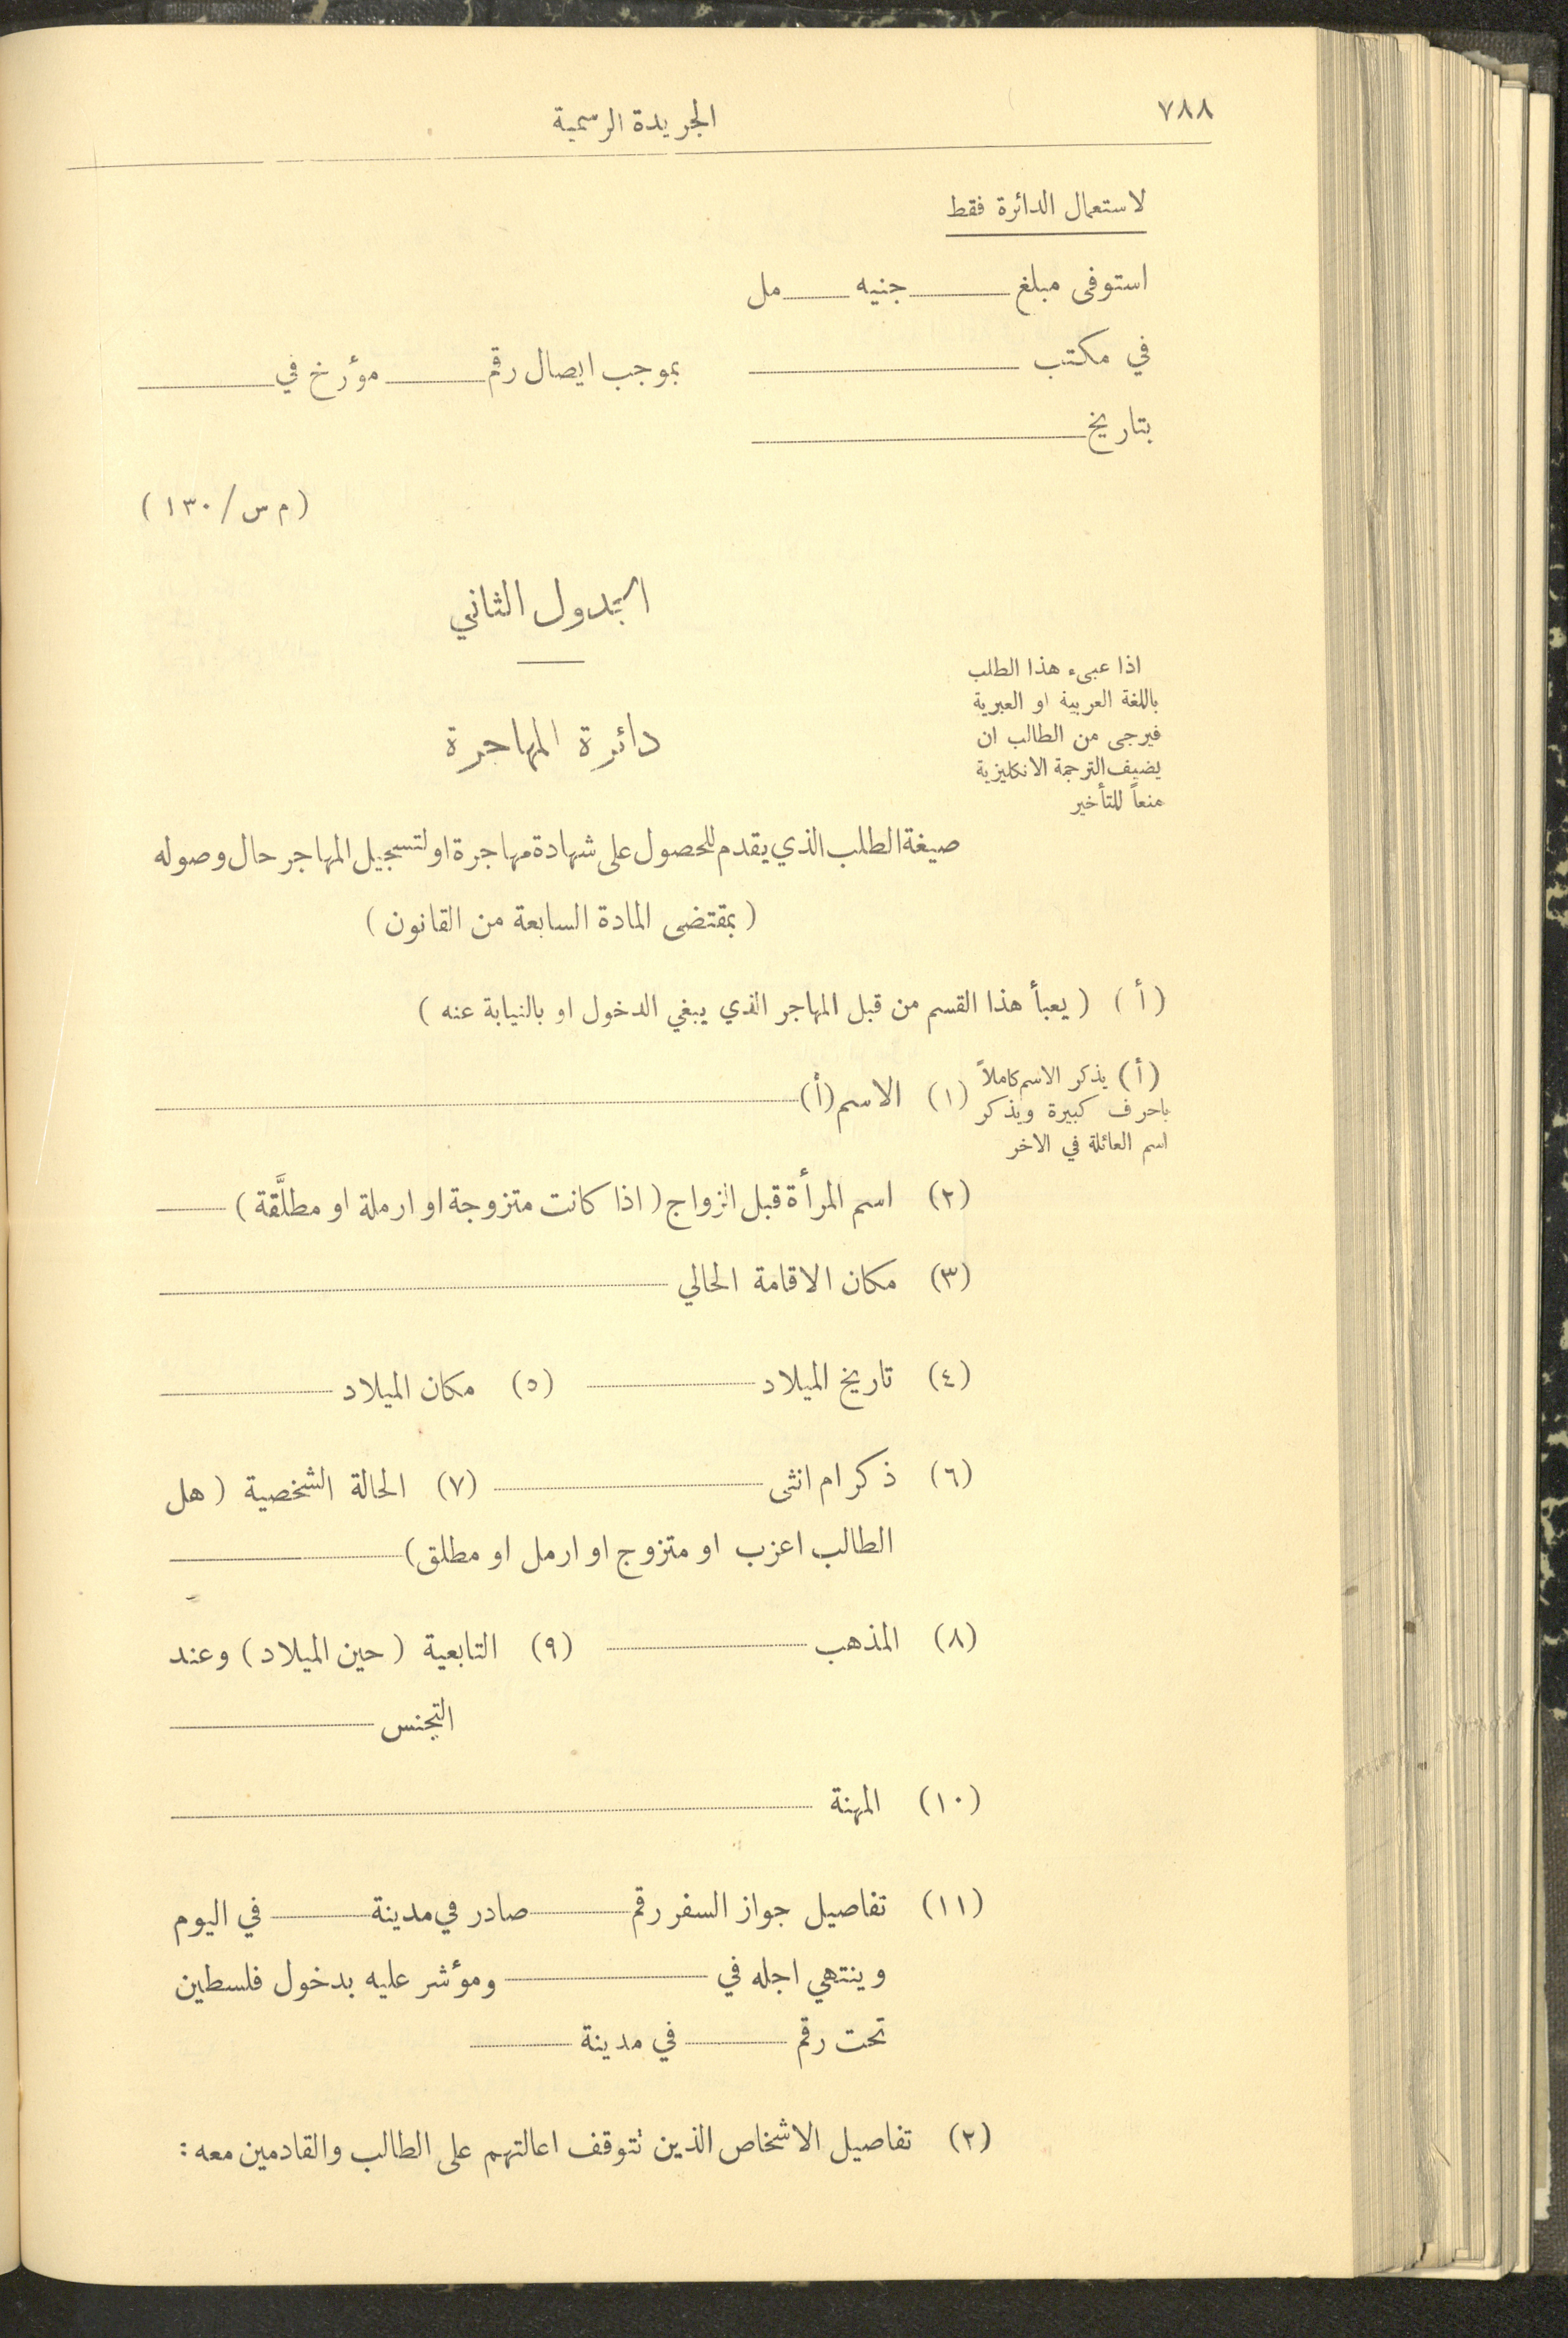 ٧٨٨
الجريدة الرسمية
لاستعمال الدائرة فقط
استوفى مبلغ ــــ جنيه ــــ مل
في مكتب ــــ بموجب ايصال رقم ــــ مؤرخ في ــــ
بتاريخ ــــ
(م س/١٣٠)
الجدول الثاني
دائرة المهاجرة
اذا عبىء هذا الطلب
باللغة العربية او العبرية
فيرجى من الطالب ان
يضيف الترجمة الانكليزية
منعاً للتأخير
صيغة الطلب الذي يقدم للحصول على شهادة مهاجرة او لتسجيل المهاجر حال وصوله
(بمقتضى المادة السابعة من القانون)
(أ) (يعبأ هذا القسم من قبل المهاجر الذي يبغي الدخول او بالنيابة عنه)
(أ) يذكر الاسم كاملاً
باحرف كبيرة ويذكر
اسم العائلة في الاخر
(١) الاسم (أ) ــــ
(٢) اسم المرأة قبل الزواج (اذا كانت متزوجة او ارملة او مطلَّقة) ــــ
(٣) مكان الاقامة الحالي ــــ
(٤) تاريخ الميلاد ــــ (٥) مكان الميلاد ــــ
(٦) ذكر ام انثى ــــ (٧) الحالة الشخصية (هل
الطالب اعزب او متزوج او ارمل او مطلق) ــــ
(٨) المذهب ــــ (٩) التابعية (حين الميلاد) وعند
التجنس ــــ
(١٠) المهنة ــــ
(١١) تفاصيل جواز السفر رقم ــــ صادر في مدينة ــــ في اليوم
وينتهي اجله في ــــ ومؤشر عليه بدخول فلسطين
تحت رقم ــــ في مدينة ــــ
(٢) تفاصيل الاشخاص الذين تتوقف اعالتهم على الطالب والقادمين معه :